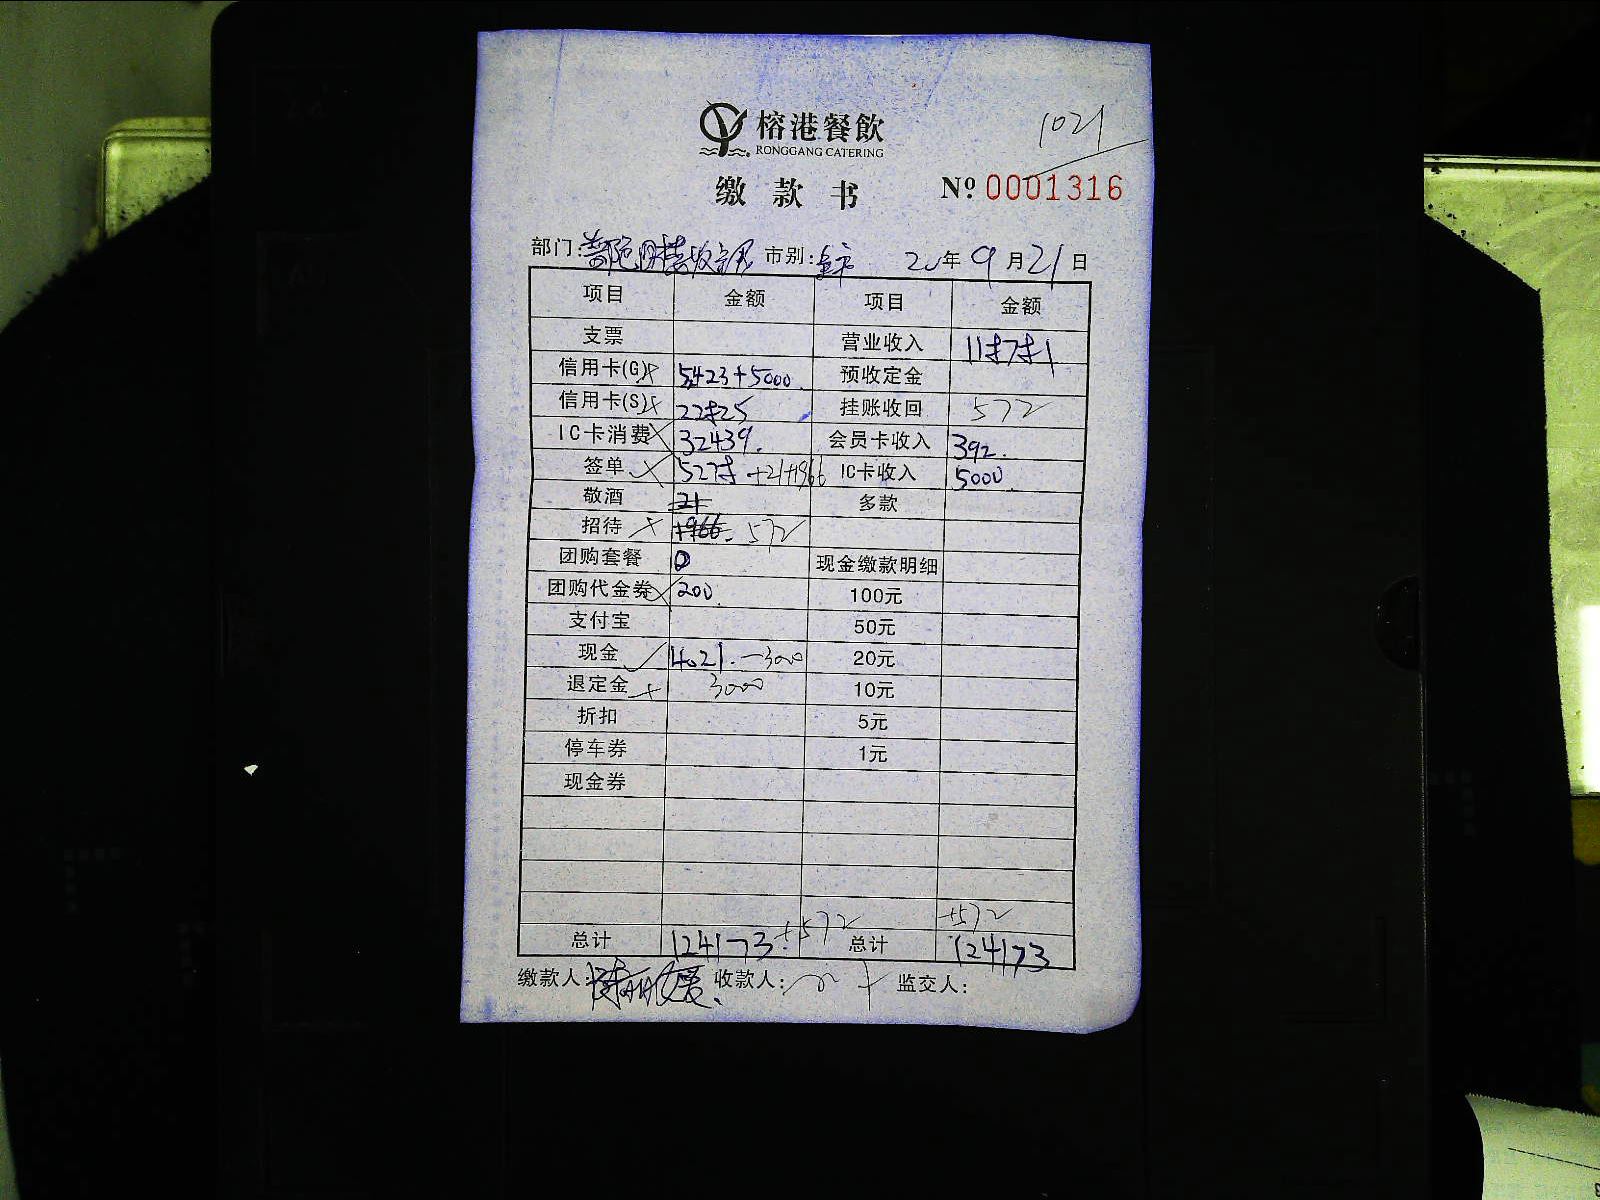 榕港餐飲
RONGGANG CATERING
1021
缴款书 Nº 0001316
部门: 市别: 20年9月21日
项目 金额 项目 金额
支票 营业收入 118781
信用卡(G) 5423+5000 预收定金
信用卡(S) 22825 挂账收回 572
IC卡消费 32439. 会员卡收入 392.
签单 52278 +21+1966 IC卡收入 5000
敬酒 21 多款
招待 1966. 572
团购套餐 0 现金缴款明细
团购代金券 200. 100元
支付宝 50元
现金 4021.-3000 20元
退定金 3000 10元
折扣 5元
停车券 1元
现金券
+572 +572
总计 124173. 总计 124173
缴款人: 收款人: 监交人: